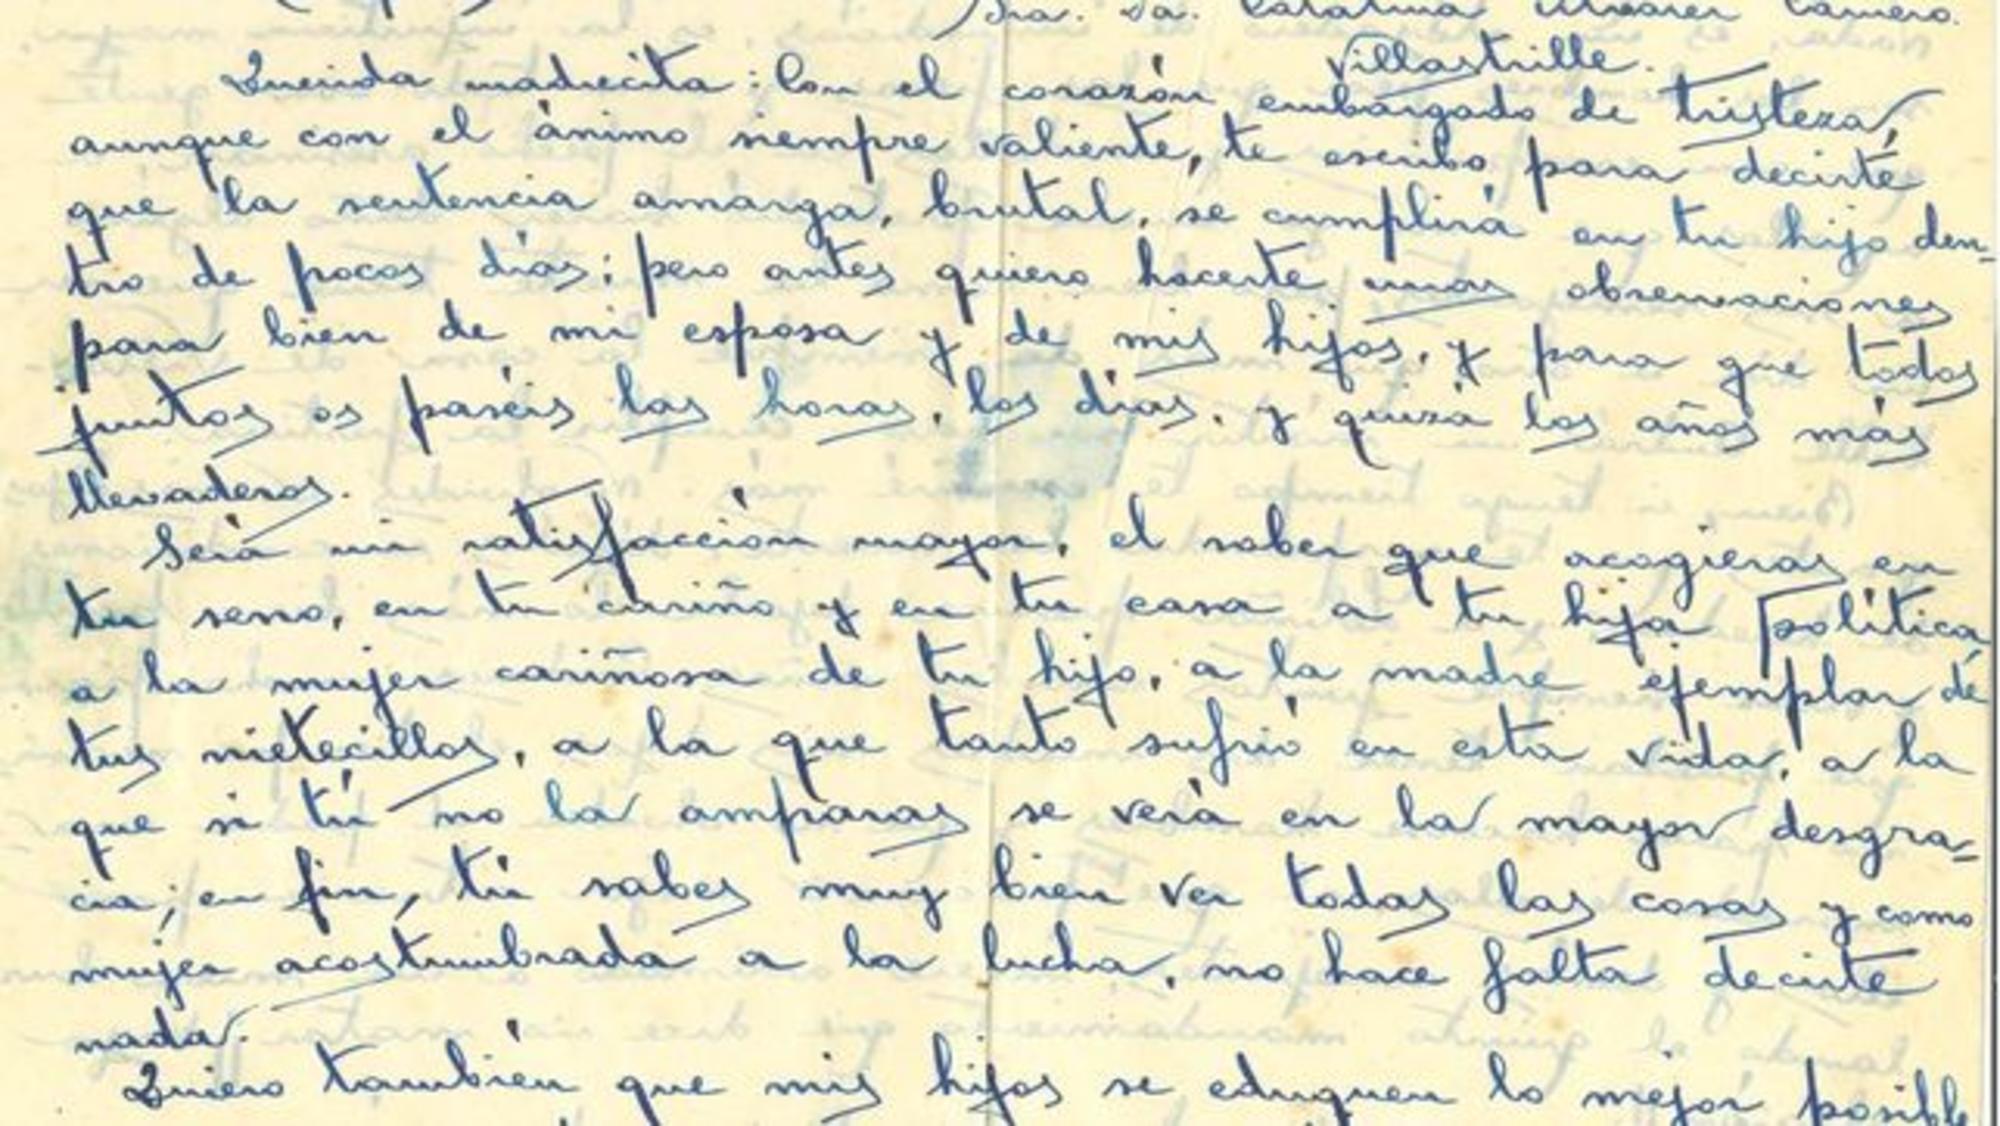 Sra. Da. Catalina Alvarez Camero.
Villastrille.
Querida madrecita: Con el corazón embargado de tristeza,
aunque con el ánimo siempre valiente, te escribo para decirte
que la sentencia amarga, brutal, se cumplirá en tu hijo den-
tro de pocos días; pero antes quiero hacerte unas observaciones
para bien de mi esposa y de mis hijos, y para que todos
juntos os paséis las horas, los días, y quizá los años más
llevaderos.
Seria mi satisfacción mayor, el saber que acogieras en
tu seno, en tu cariño y en tu casa a tu hija política,
a la mujer cariñosa de tu hijo, a la madre ejemplar de
tus nietecillos, a la que tanto sufrió en esta vida, a la
que si tú no la amparas se verá en la mayor desgra-
cia; en fin, tú sabes muy bien ver todas las cosas y como
mujer acostumbrada a la lucha, no hace falta decirte
nada.
Quiero también que mis hijos se eduquen lo mejor posible